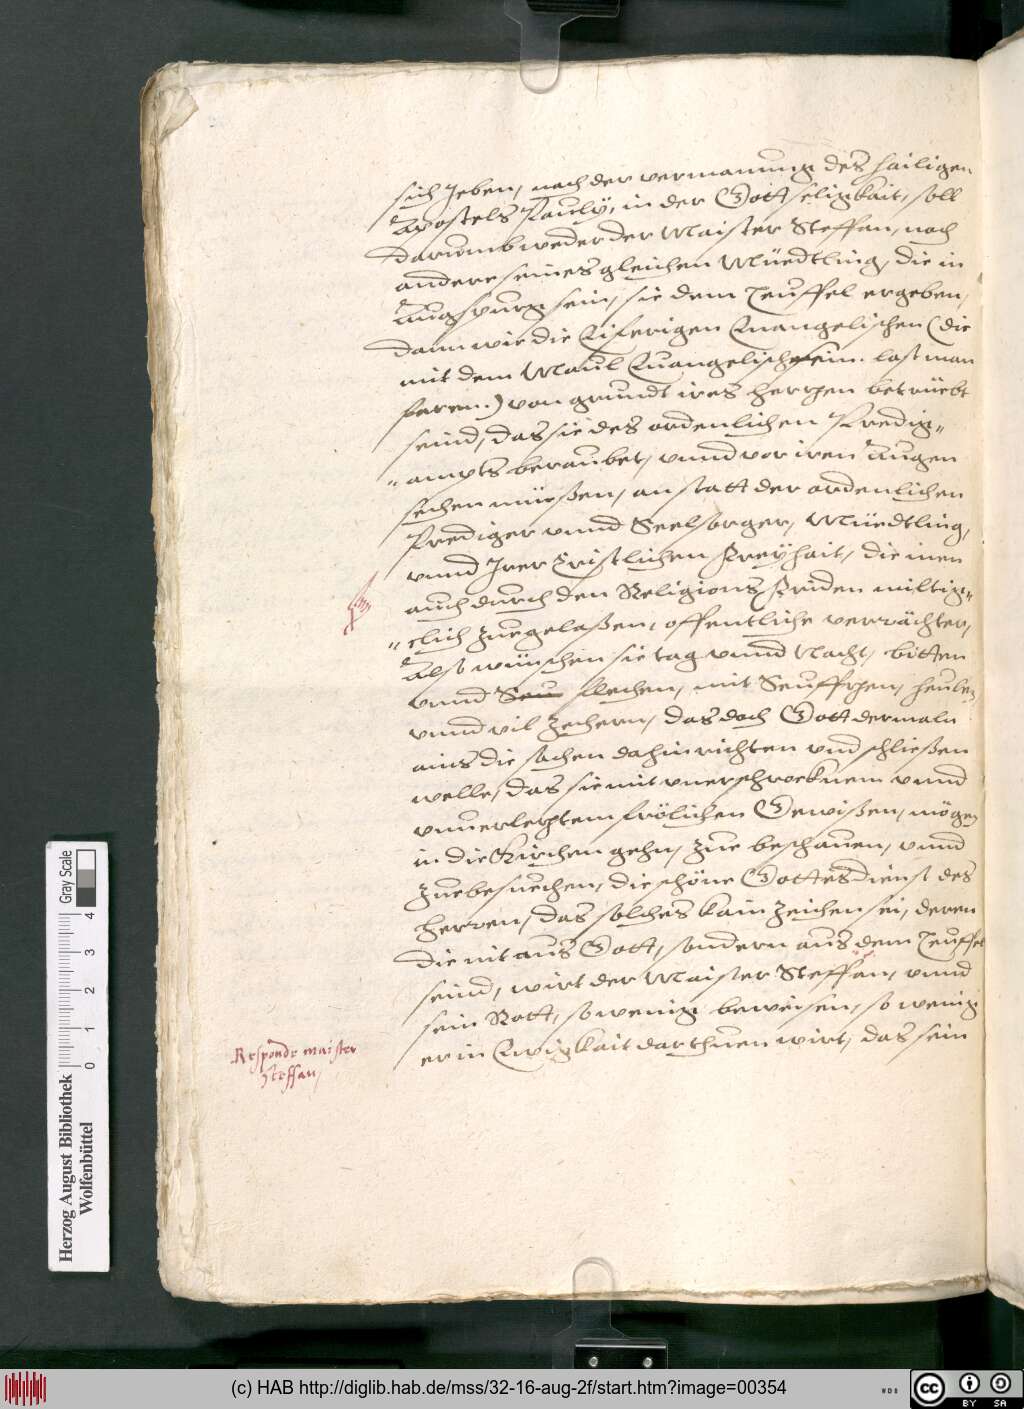 sich Jeben, nach der vermanung des hailigen
Apostels Pauly, in der Gottseligkait, soll
darumb weder der Maister Steffan, noch
andere seines gleichen Müedtling, die in
Augspurg sein, sie dem Teuffel ergeben,
dann wie die Eiferigen Euangelischen (die
mit dem Maul Euangelisch sein. last man
faren.) von grundt ires hertzen betrüebt
seind, das sie des ordenlichen Predig„
„ampts beraubet, vnnd vor iren Augen
sechen müeßen, an statt der ordenlichen
Prediger vnnd Seelsorger, Müedtling,
vnnd Irer Cristlichen Freyhait, die inen
auch durch den Religions Friden miltig„
„clich zuegelaßen, offentliche verrächter,
Also wünschen sie tag vnnd Nacht, bitten
vnnd Seu flechen, mit Seufftzen, heulen
vnnd vil Zechern, das doch Gott dermaln
ains die sachen dahin richten vnd schließen
welle, das sie mit vnerschrocknem vnnd
vnuerletztem frölichen Gewißen, mögen
in die Kirchen gehn, zue beschauen, vnnd
zuebesuechen, die schöne Gottesdienst des
Herren, das solches kain Zeichen sei, deren
die nit aus Gott, sondern aus dem Teuffel
seind, wirt der Maister Steffan, vnnd
sein Rott, so wenig beweisen, so wenig
er in Ewigkait darthuen wirt, das sein
Responde maister
steffan,
Herzog August Bibliothek
Wolfenbüttel
Gray Scale
0 1 2 3 4
(c) HAB http://diglib.hab.de/mss/32-16-aug-2f/start.htm?image=00354
WDB
cc
BY SA